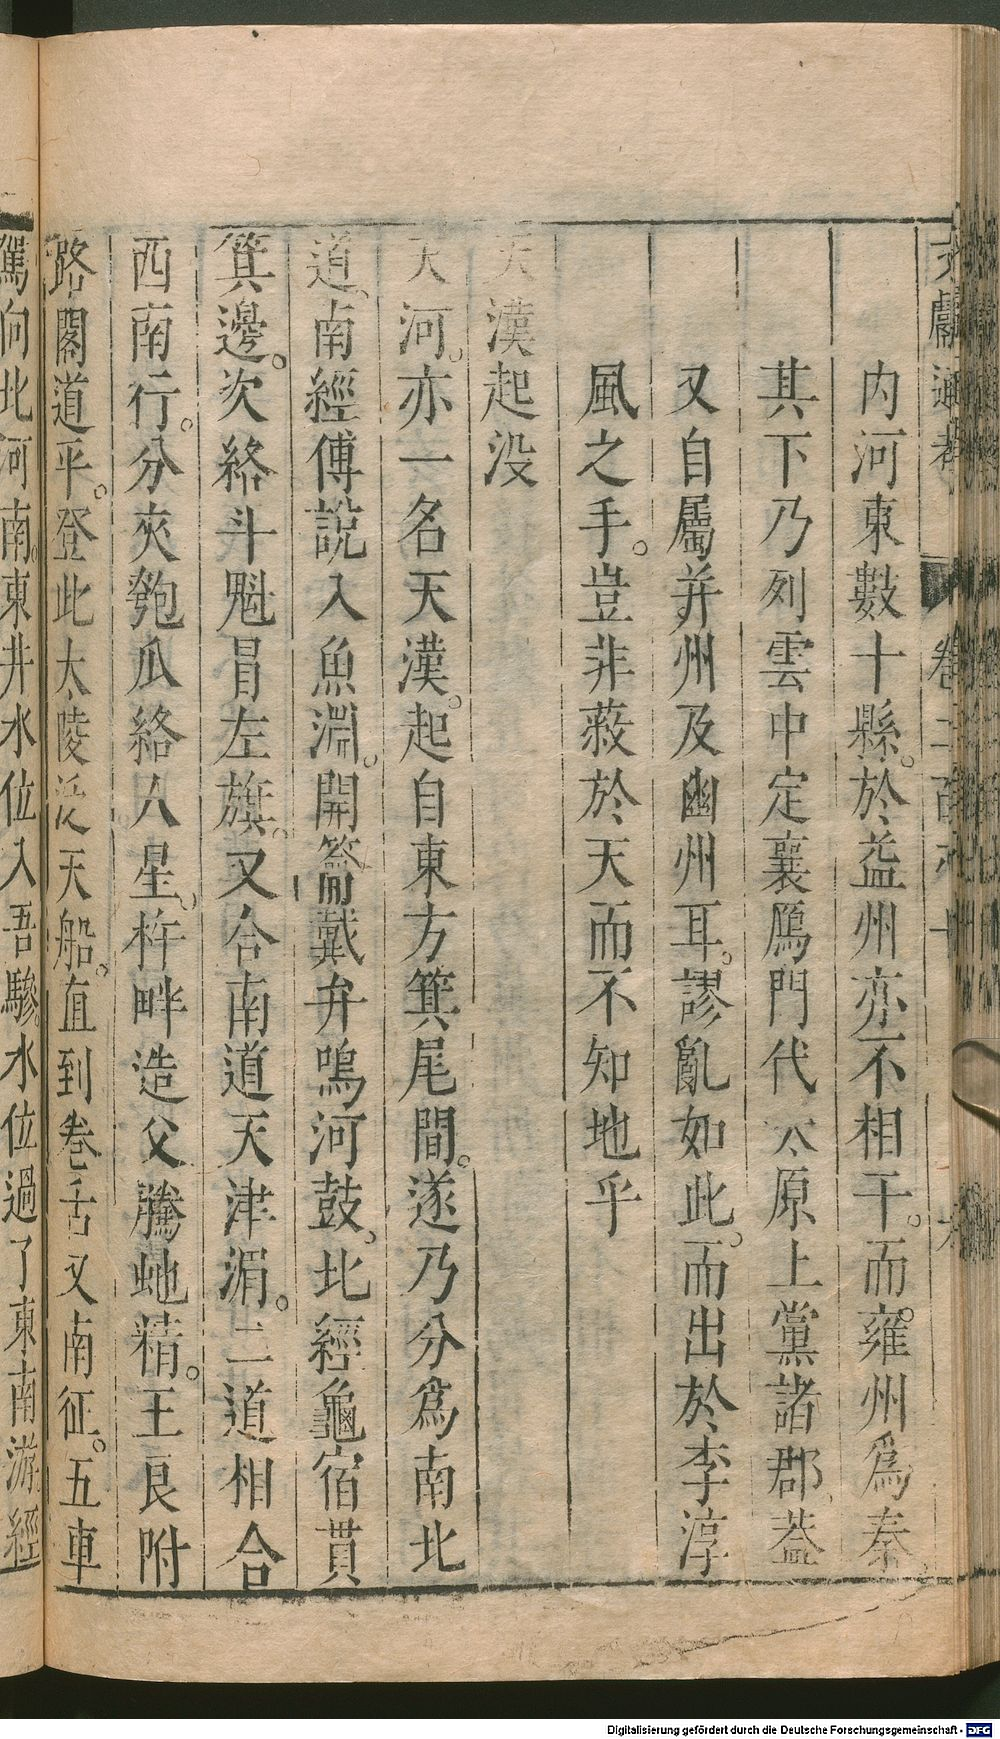 文獻通考 卷二百八十
内河東數十縣。於益州亦不相干。而雍州爲秦
其下乃列雲中定襄鴈門代太原上黨諸郡、葢
又自屬并州及幽州耳。謬亂如此。而出於李淳
風之手。豈非蔽於天而不知地乎
天漢起没
天河。亦一名天漢。起自東方箕尾間。遂乃分爲南北
道。南經傅説入魚淵。開籥戴弁鳴河鼓。北經龜宿貫
箕邊。次絡斗魁冒左旗。又合南道天津湄。二道相合
西南行。分夾匏瓜絡人星。杵畔造父騰虵精。王良附
路閣道平。登此大陵泛天船。直到卷舌又南征。五車
駕向北河南。東井水位入吾驂。水位過了東南游經
Digitalisierung gefördert durch die Deutsche Forschungsgemeinschaft - DFG